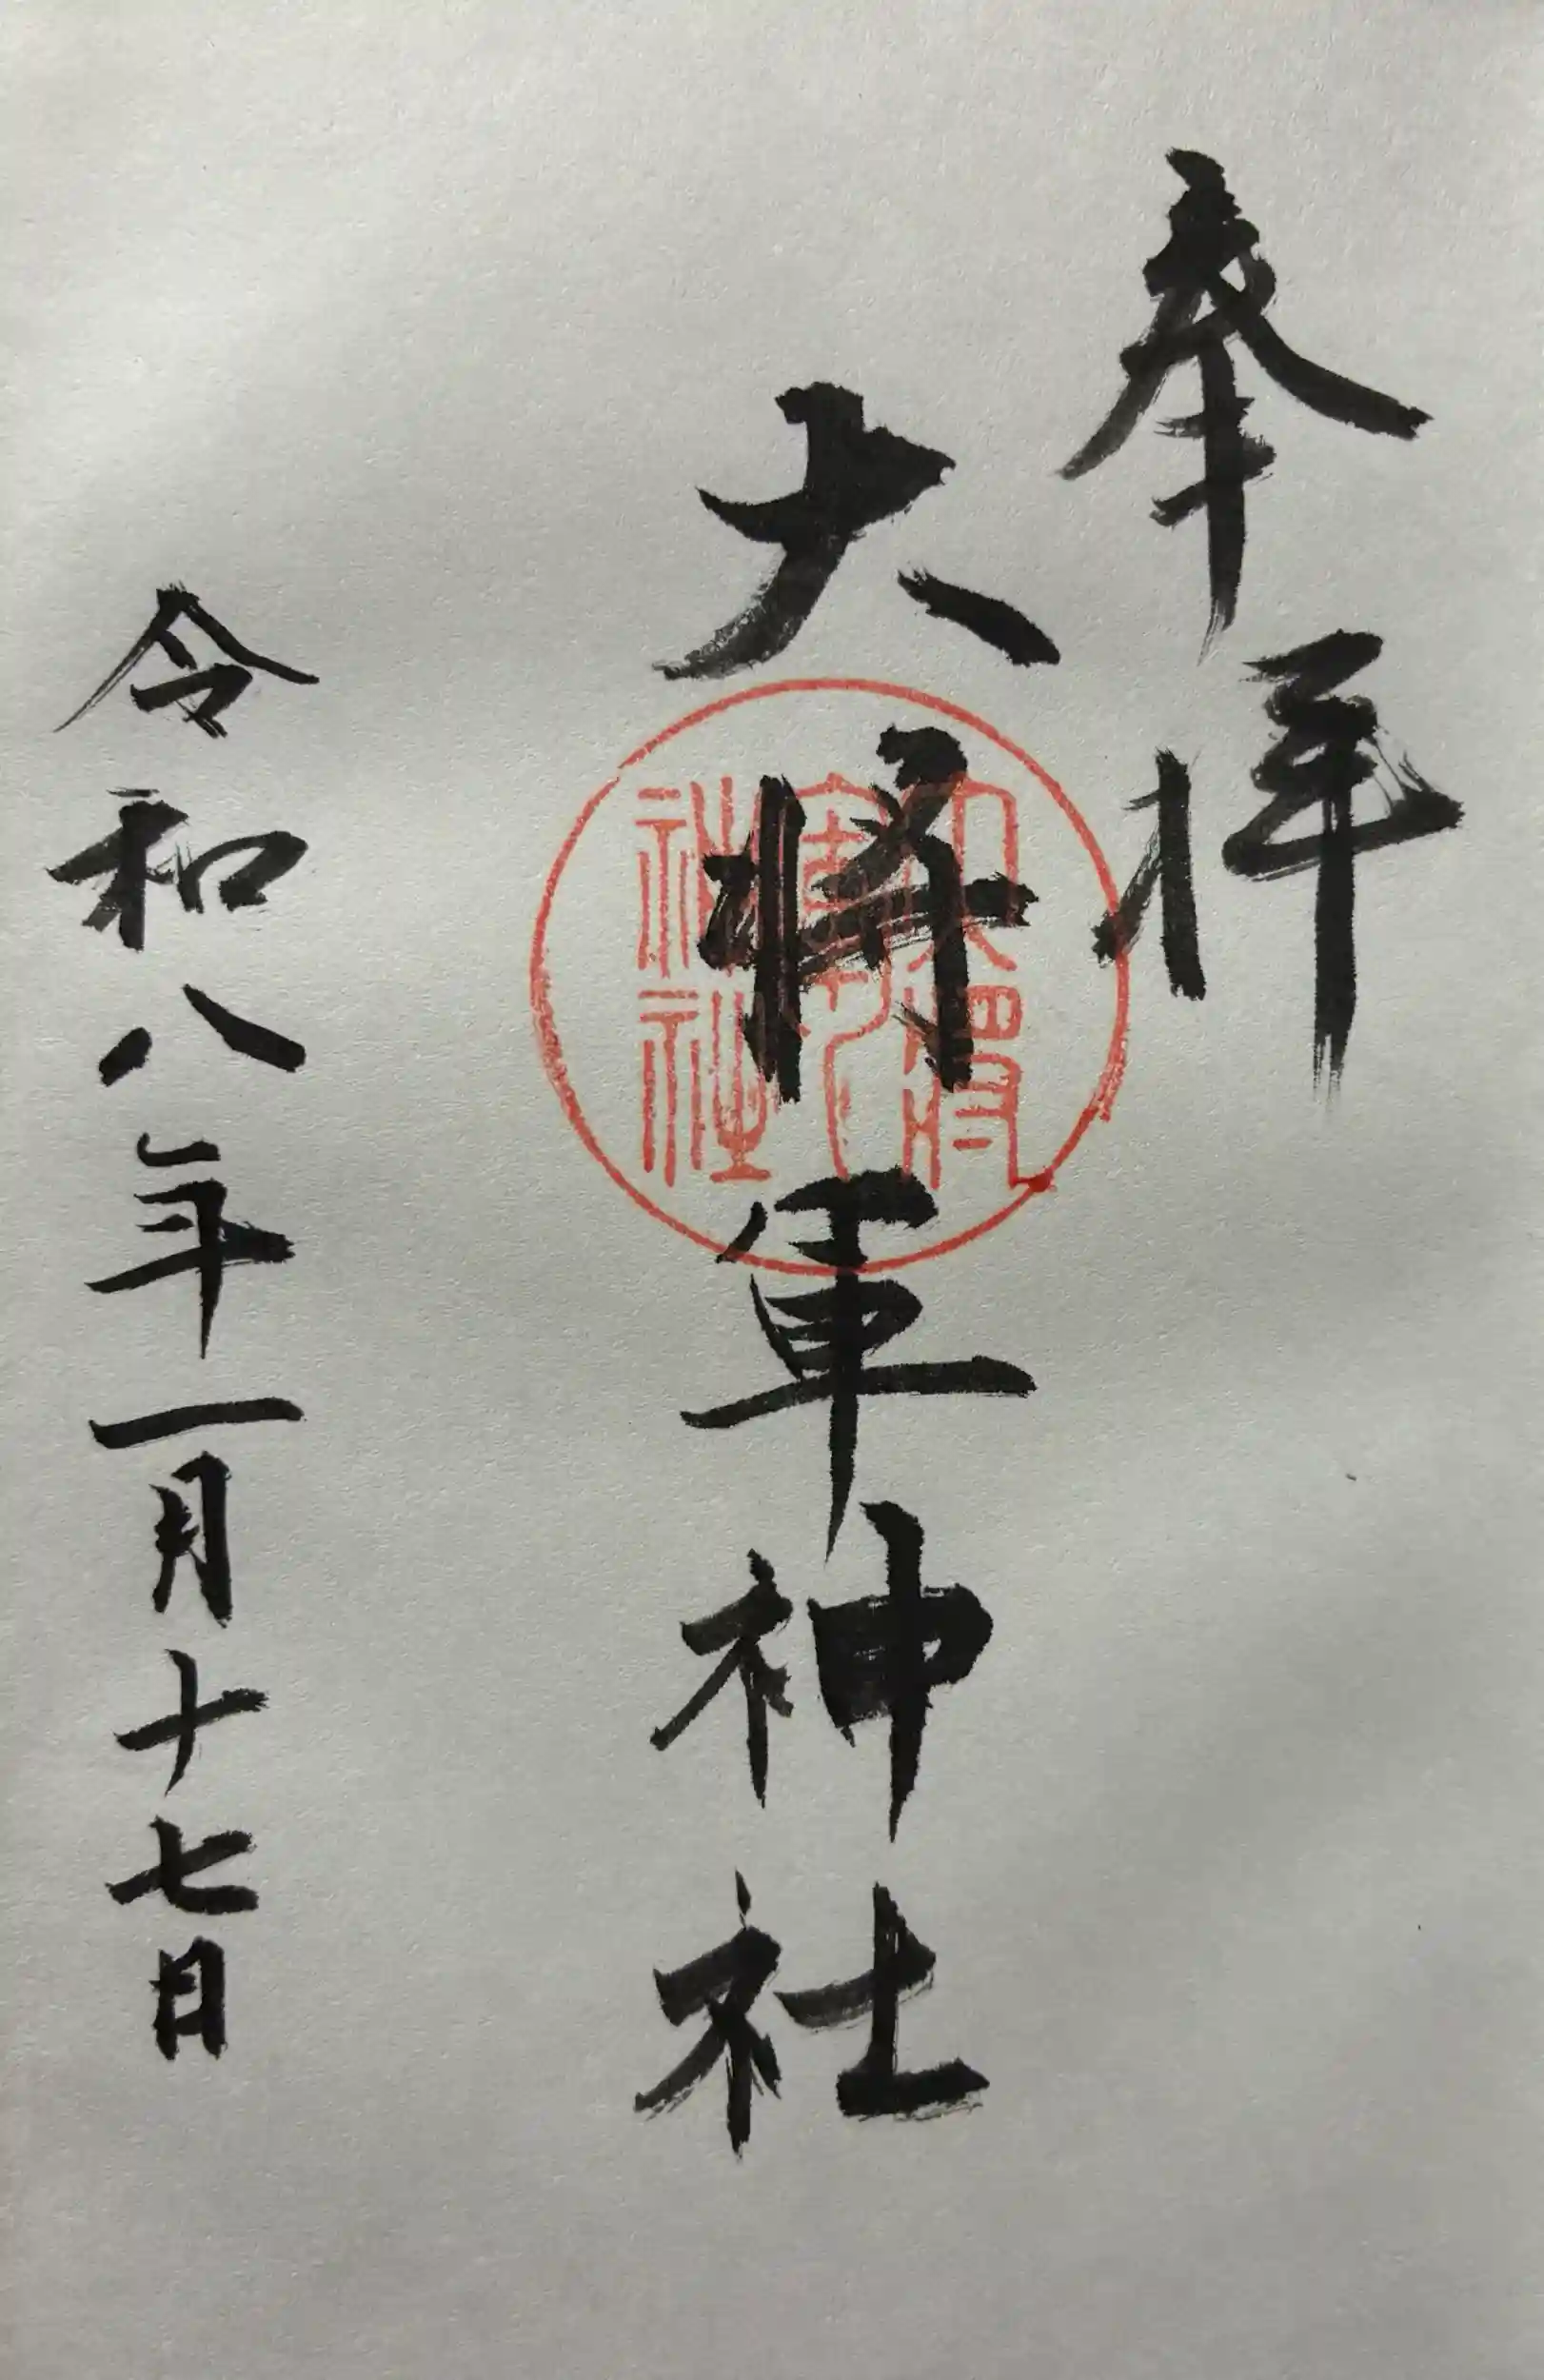 奉拝
大将軍神社
大将
軍
神社
令和八年一月十七日